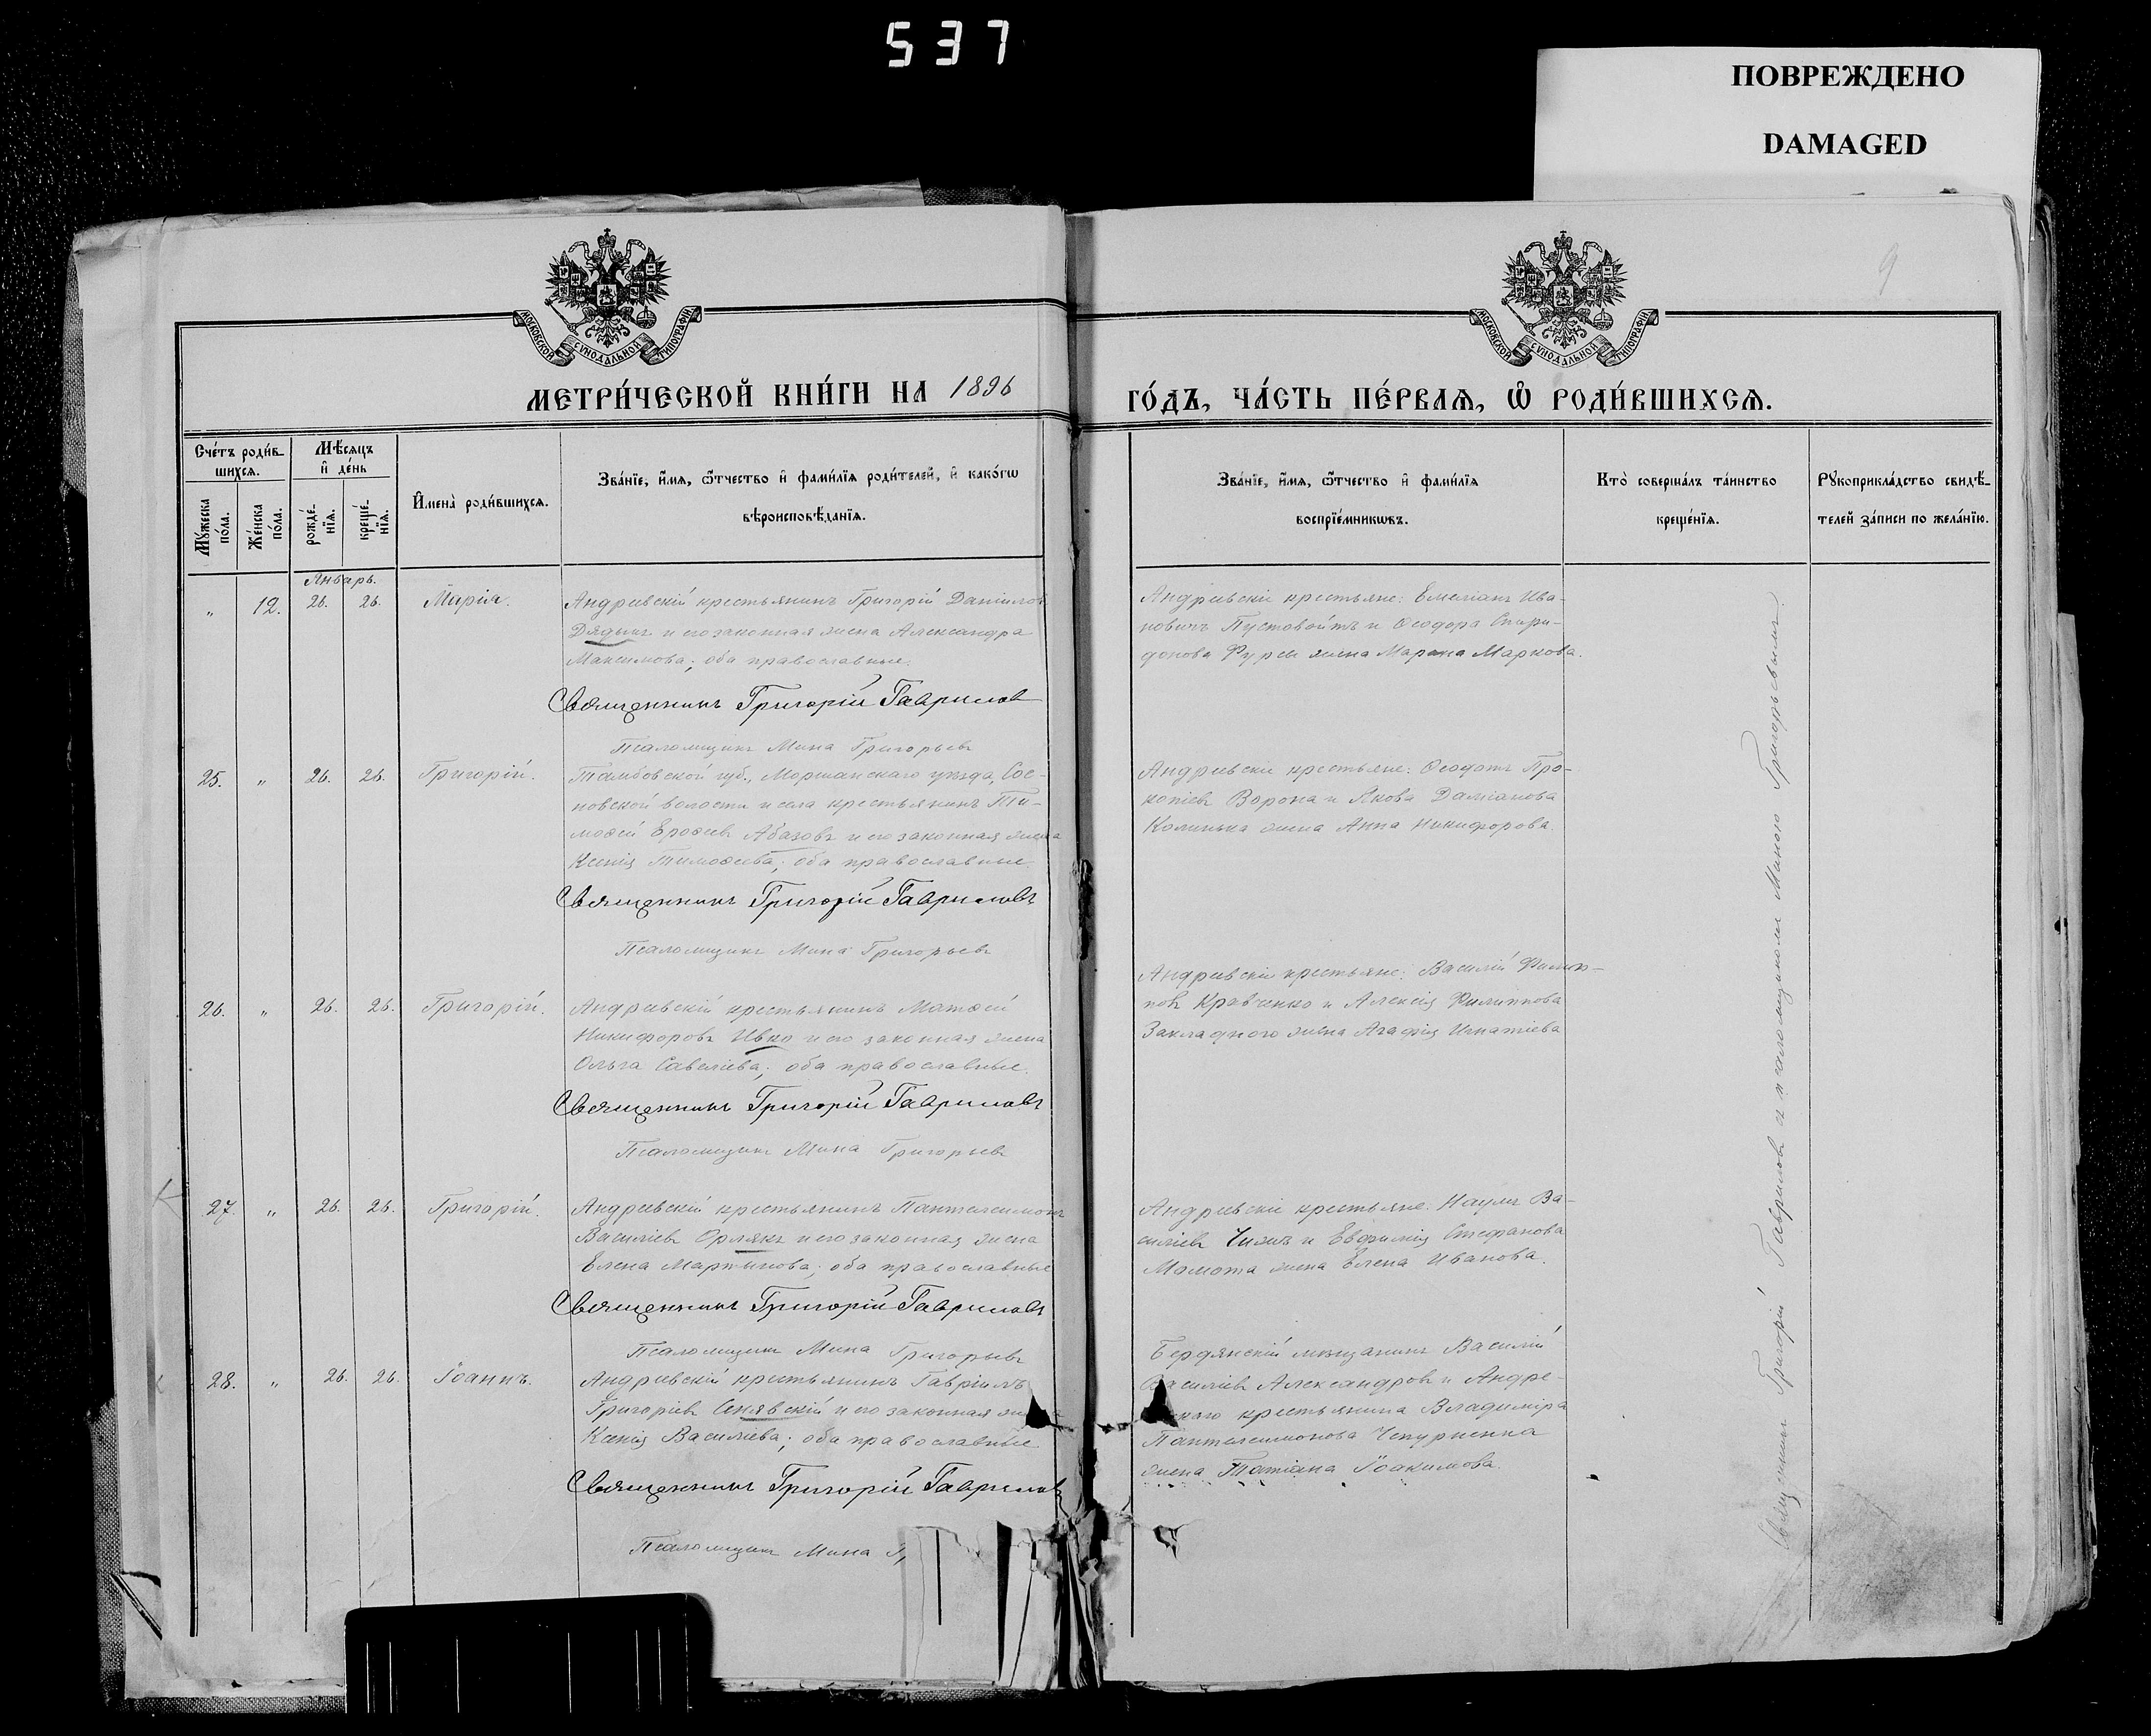 537
ПОВРЕЖДЕНО
DAMAGED
9
МОСКОВСКОЙ СѴНОДАЛЬНОЙ ТИПОГРАФІИ
МОСКОВСКОЙ СѴНОДАЛЬНОЙ ТИПОГРАФІИ
МЕТРИ́ЧЕСКОЙ КНИ́ГИ НА 1896
ГО́ДЪ, ЧА́СТЬ ПЕ́РВАѦ, Ѽ РОДИ́ВШИХСѦ.
Сче́тъ роди́в-
шихсѧ.
Мѣ́сѧцъ
и де́нь
Мꙋ́жеска по́ла.
Же́нска по́ла.
рожде́-нїѧ.
креще́-нїѧ.
Имена̀ роди́вшихсѧ.
Зва́нїе, и́мѧ, ѻ҆́тчество и фами́лїѧ роди́телей, и како́гѡ
вѣроисповѣ́данїѧ.
Зва́нїе, и́мѧ, ѻ҆́тчество и фами́лїѧ
воспрїе́мникѡвъ.
Кто̀ соверша́лъ та́инство
креще́нїѧ.
Рꙋкоприкла́дство свидѣ́-
телей за́писи по жела́нїю.
Январь.
„ 12. 26. 26. Марія.
Андреевскій крестьянинъ Григорій Даніилов
Дядынъ и его законная жена Александра
Максимова; оба православные.
Священникъ Григорій Гаврилов
Псаломщикъ Мина Григорьевъ
Андреевскіе крестьяне: Емеліанъ Ива-
новичъ Пустовойтъ и Ѳеодора Спири-
донова Фурсы жена Марина Маркова.
25. „ 26. 26. Григорій.
Тамбовской губ., Моршанскаго уѣзда, Сос-
новской волости и села крестьянинъ Ти-
моѳей Ероѳеев Абазовъ и его законная жена
Ксенія Тимоѳеева; оба православные.
Священникъ Григорій Гавриловъ
Псаломщикъ Мина Григорьевъ
Андреевскіе крестьяне: Ѳеодотъ Про-
копіевъ Ворона и Якова Даміанова
Калинька жена Анна Никифорова.
26. „ 26. 26. Григорій.
Андреевскій крестьянинъ Матѳей
Никифоровъ Ивко и его законная жена
Ольга Савеліева; оба православные.
Священникъ Григорій Гавриловъ
Псаломщикъ Мина Григорьевъ
Андреевскіе крестьяне: Василій Филип-
повъ Кравченко и Алексія Филиппова
Закладного жена Агафія Игнатіева
27. „ 26. 26. Григорій.
Андреевскій крестьянинъ Пантелеимонъ
Василіевъ Орлякъ и его законная жена
Елена Мартынова; оба православные
Священникъ Григорій Гавриловъ
Псаломщикъ Мина Григорьевъ
Андреевскіе крестьяне: Наумъ Ва-
силіевъ Чижъ и Евфимія Стефанова
Мамота жена Елена Иванова.
28. „ 26. 26. Іоаннъ.
Андреевскій крестьянинъ Гавріилъ
Григоріевъ Синявскій и его законная
Ксенія Василіева; оба православные
Священникъ Григорій Гаврилов
Псаломщикъ Мина
Бердянскій мѣщанинъ Василій
Василіевъ Александровъ и Андре-
крестьянина Владиміра
Пантелеимонова Чепурненка
жена Татіана Іоакимова.
Священникъ Григорій Гавриловъ съ псаломщикомъ Миною Григорьевымъ.